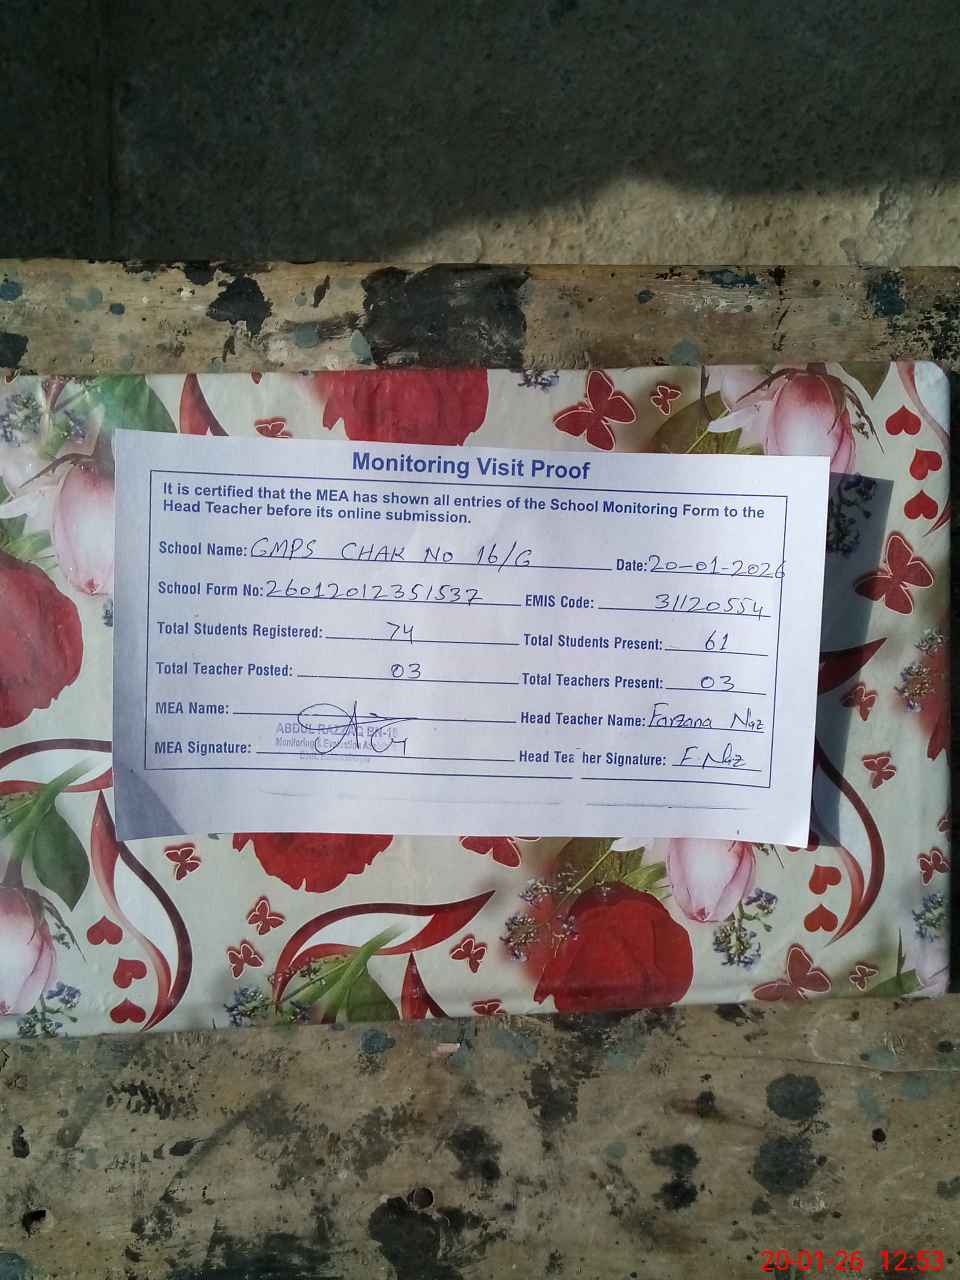 Monitoring Visit Proof
It is certified that the MEA has shown all entries of the School Monitoring Form to the
Head Teacher before its online submission.
School Name: GMPS CHAK NO 16/G Date: 20-01-2026
School Form No: 26012012351537 EMIS Code: 31120554
Total Students Registered: 74 Total Students Present: 61
Total Teacher Posted: 03 Total Teachers Present: 03
MEA Name: Head Teacher Name: Farzana Naz
ABDUL RAZZAQ BN-16
Monitoring & Evaluation
MEA Signature: Head Teacher Signature: F. Naz
20-01-26 12:53